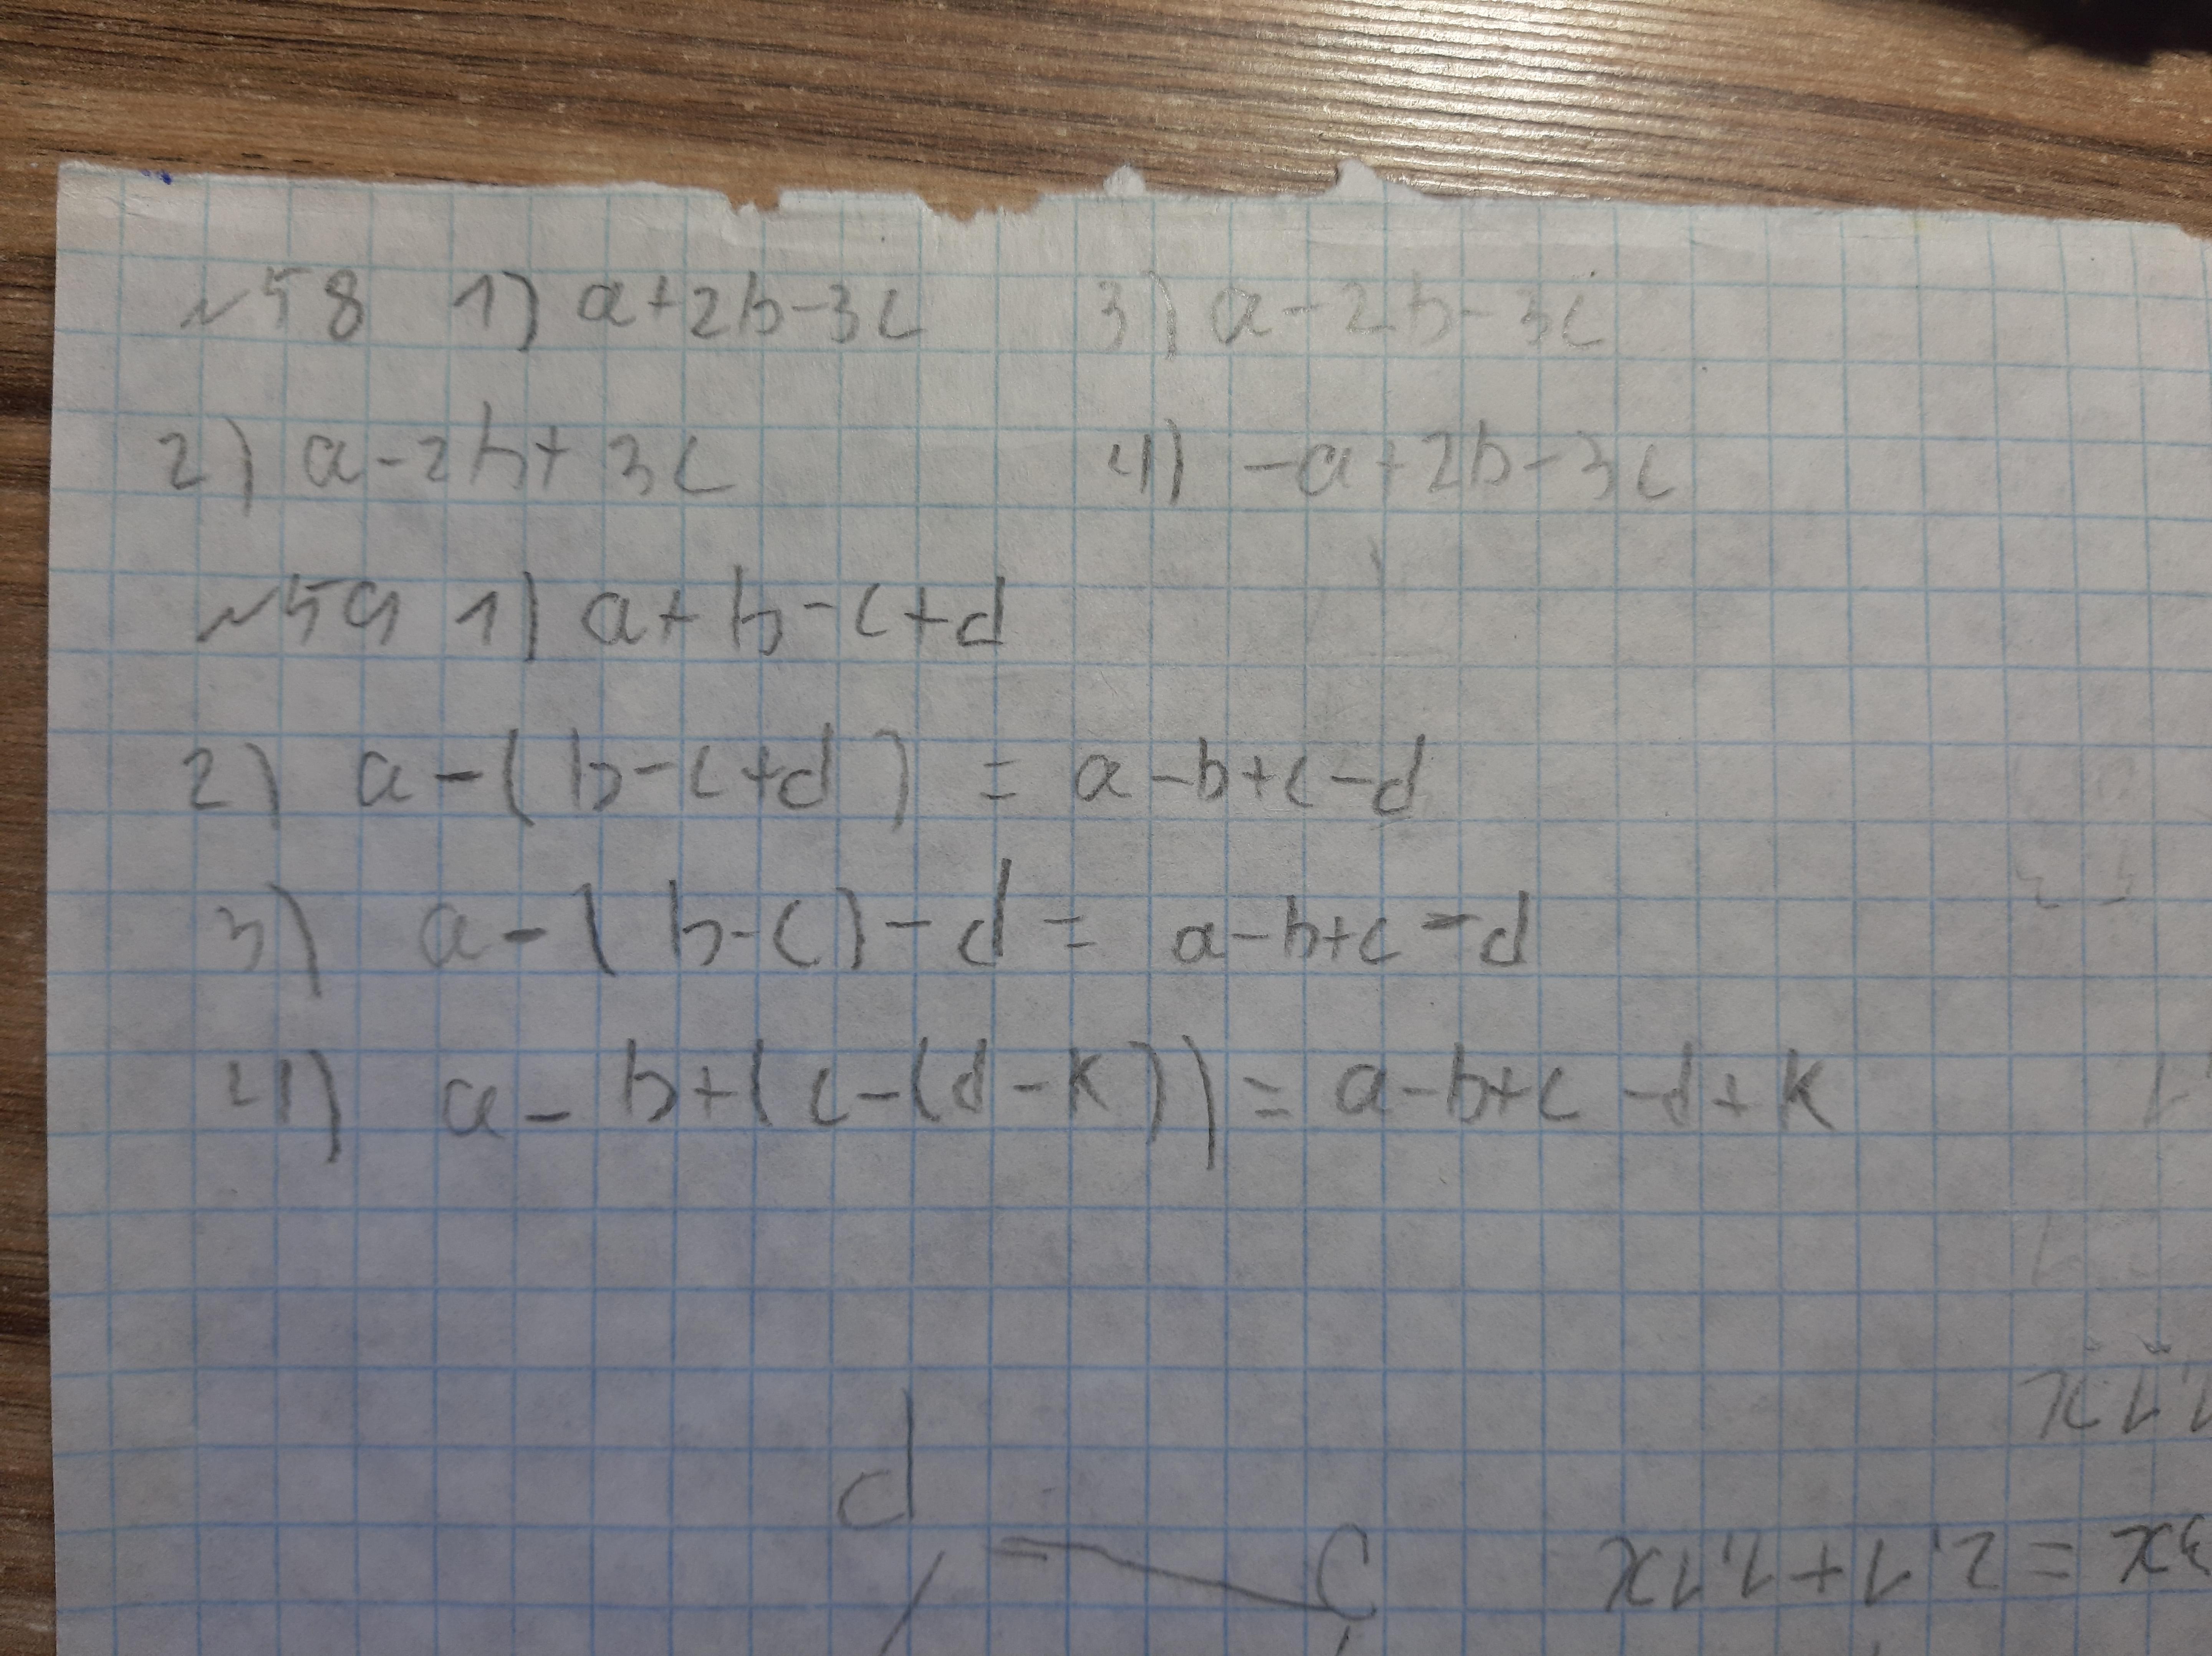 №58 1) a+2b-3c 3) a-2b-3c
2) a-2b+3c 4) -a+2b-3c
№59 1) a+b-c+d
2) a-(b-c+d) = a-b+c-d
3) a-(b-c)-d = a-b+c-d
4) a-b+(c-(d-k)) = a-b+c-d+k
d
c
3x = 2,1+1,1x